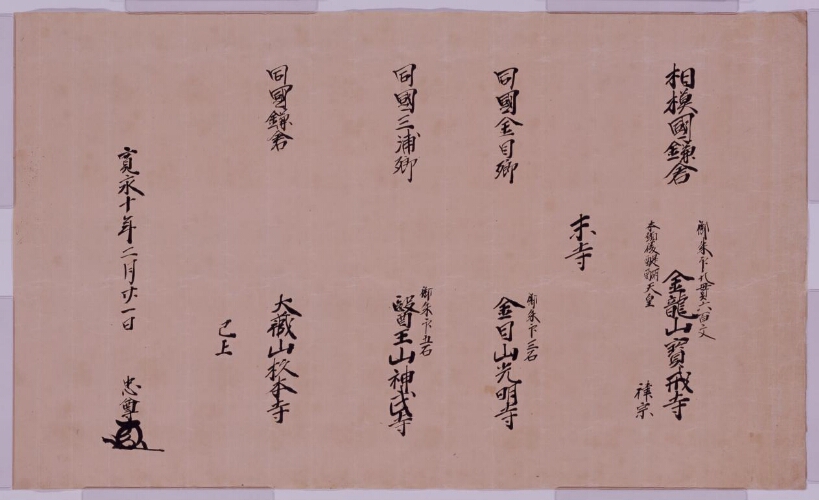 相模國鎌倉
御朱印九貫六百文
金龍山寳戒寺
本願後醍醐天皇
律宗
末寺
同國金目郷
御朱印三石
金目山光明寺
同國三浦郷
御朱印五石
醫王山神武寺
同國鎌倉
大藏山杉本寺
已上
寛永十年二月廿一日
忠尊